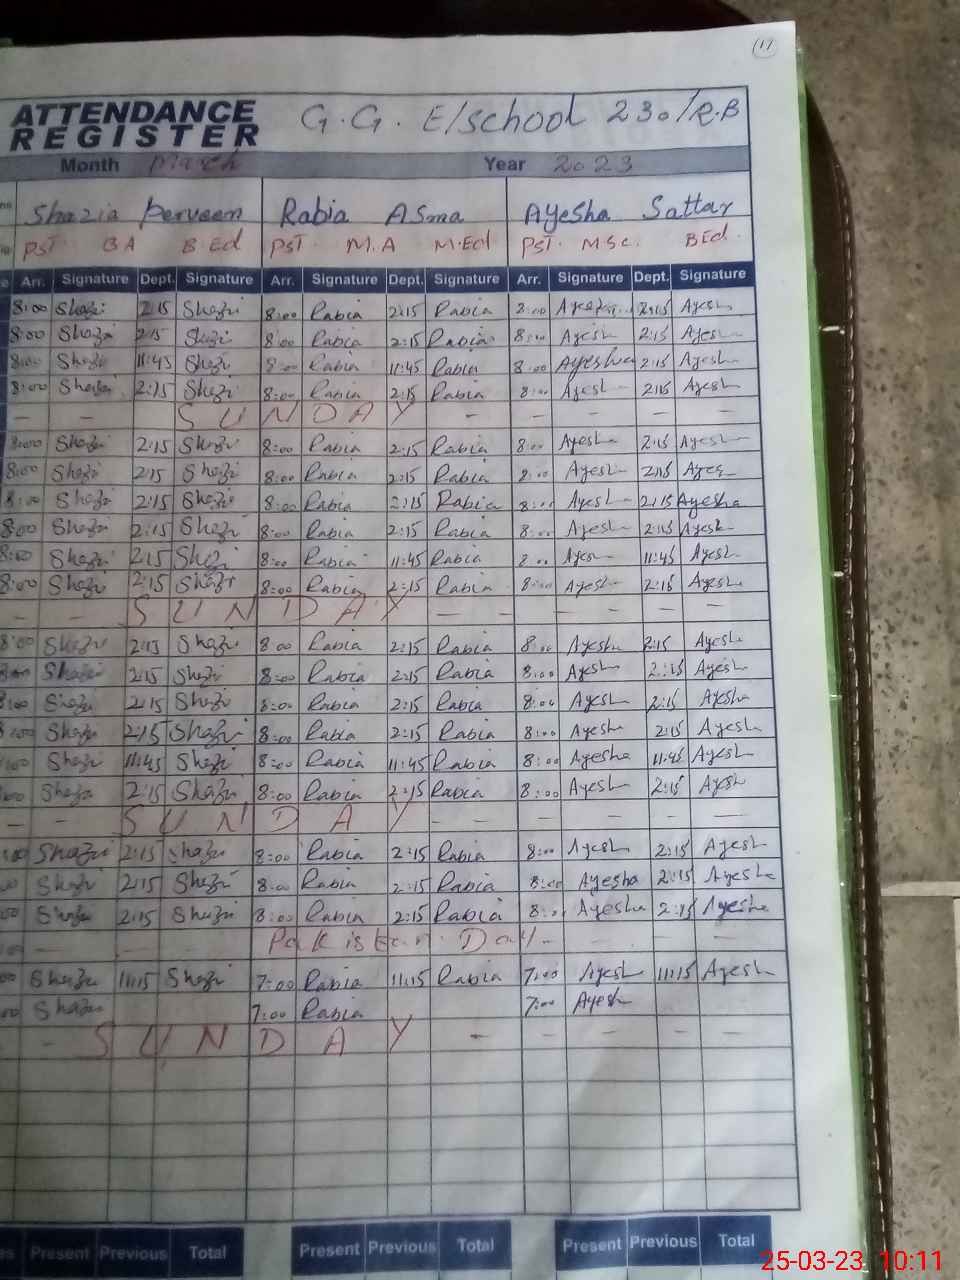 17
ATTENDANCE REGISTER G.G. E/school 230/R.B
Month March Year 2023
Shazia Perveen Rabia Asma Ayesha Sattar
PST. BA B.Ed PST. M.A M.Ed PST. MSc. BEd.
Arr. Signature Dept. Signature Arr. Signature Dept. Signature Arr. Signature Dept. Signature
8:00 Shazi 2:15 Shazi 8:00 Rabia 2:15 Rabia 8:00 2:15 Ayesh
8:00 Shazi 2:15 Shazi 8:00 Rabia 2:15 Rabia 8:00 Ayesh 2:15 Ayesh
8:00 Shazi 11:45 Shazi 8:00 Rabia 11:45 Rabia 8:00 Ayesha 2:15 Ayesh
8:00 Shazi 2:15 Shazi 8:00 Rabia 2:15 Rabia 8:00 Ayesh 2:15 Ayesh
- - SUNDAY - - - - -
8:00 Shazi 2:15 Shazi 8:00 Rabia 2:15 Rabia 8:00 Ayesh 2:15 Ayesh
8:00 Shazi 2:15 Shazi 8:00 Rabia 2:15 Rabia 8:00 Ayesh 2:15 Ayes
8:00 Shazi 2:15 Shazi 8:00 Rabia 2:15 Rabia 8:00 Ayesh 2:15 Ayesha
8:00 Shazi 2:15 Shazi 8:00 Rabia 2:15 Rabia 8:00 Ayesh 2:15 Ayesh
8:00 Shazi 2:15 Shazi 8:00 Rabia 11:45 Rabia 8:00 Ayesh 11:45 Ayesh
8:00 Shazi 2:15 Shazi 8:00 Rabia 2:15 Rabia 8:00 Ayesh 2:15 Ayesh
- - SUNDAY - - - - -
8:00 Shazi 2:15 Shazi 8:00 Rabia 2:15 Rabia 8:00 Ayesh 2:15 Ayesh
8:00 Shazi 2:15 Shazi 8:00 Rabia 2:15 Rabia 8:00 Ayesh 2:15 Ayesh
8:00 Shazi 2:15 Shazi 8:00 Rabia 2:15 Rabia 8:00 Ayesh 2:15 Ayesha
8:00 Shazi 2:15 Shazi 8:00 Rabia 2:15 Rabia 8:00 Ayesha 2:15 Ayesh
:00 Shazi 11:45 Shazi 8:00 Rabia 11:45 Rabia 8:00 Ayesha 11:45 Ayesh
:00 Shazi 2:15 Shazi 8:00 Rabia 2:15 Rabia 8:00 Ayesh 2:15 Ayesh
- - SUNDAY - - - - -
:00 Shazi 2:15 Shazi 8:00 Rabia 2:15 Rabia 8:00 Ayesh 2:15 Ayesh
00 Shazi 2:15 Shazi 8:00 Rabia 2:15 Rabia 8:00 Ayesha 2:15 Ayesha
00 Shazi 2:15 Shazi 8:00 Rabia 2:15 Rabia 8:00 Ayesha 2:15 Ayesha
- - - Pakistan Day - - - -
00 Shazi 11:15 Shazi 7:00 Rabia 11:15 Rabia 7:00 Ayesh 11:15 Ayesh
00 Shazi 7:00 Rabia 7:00 Ayesh
- - SUNDAY - - - - -
Present Previous Total Present Previous Total Present Previous Total
25-03-23 10:11